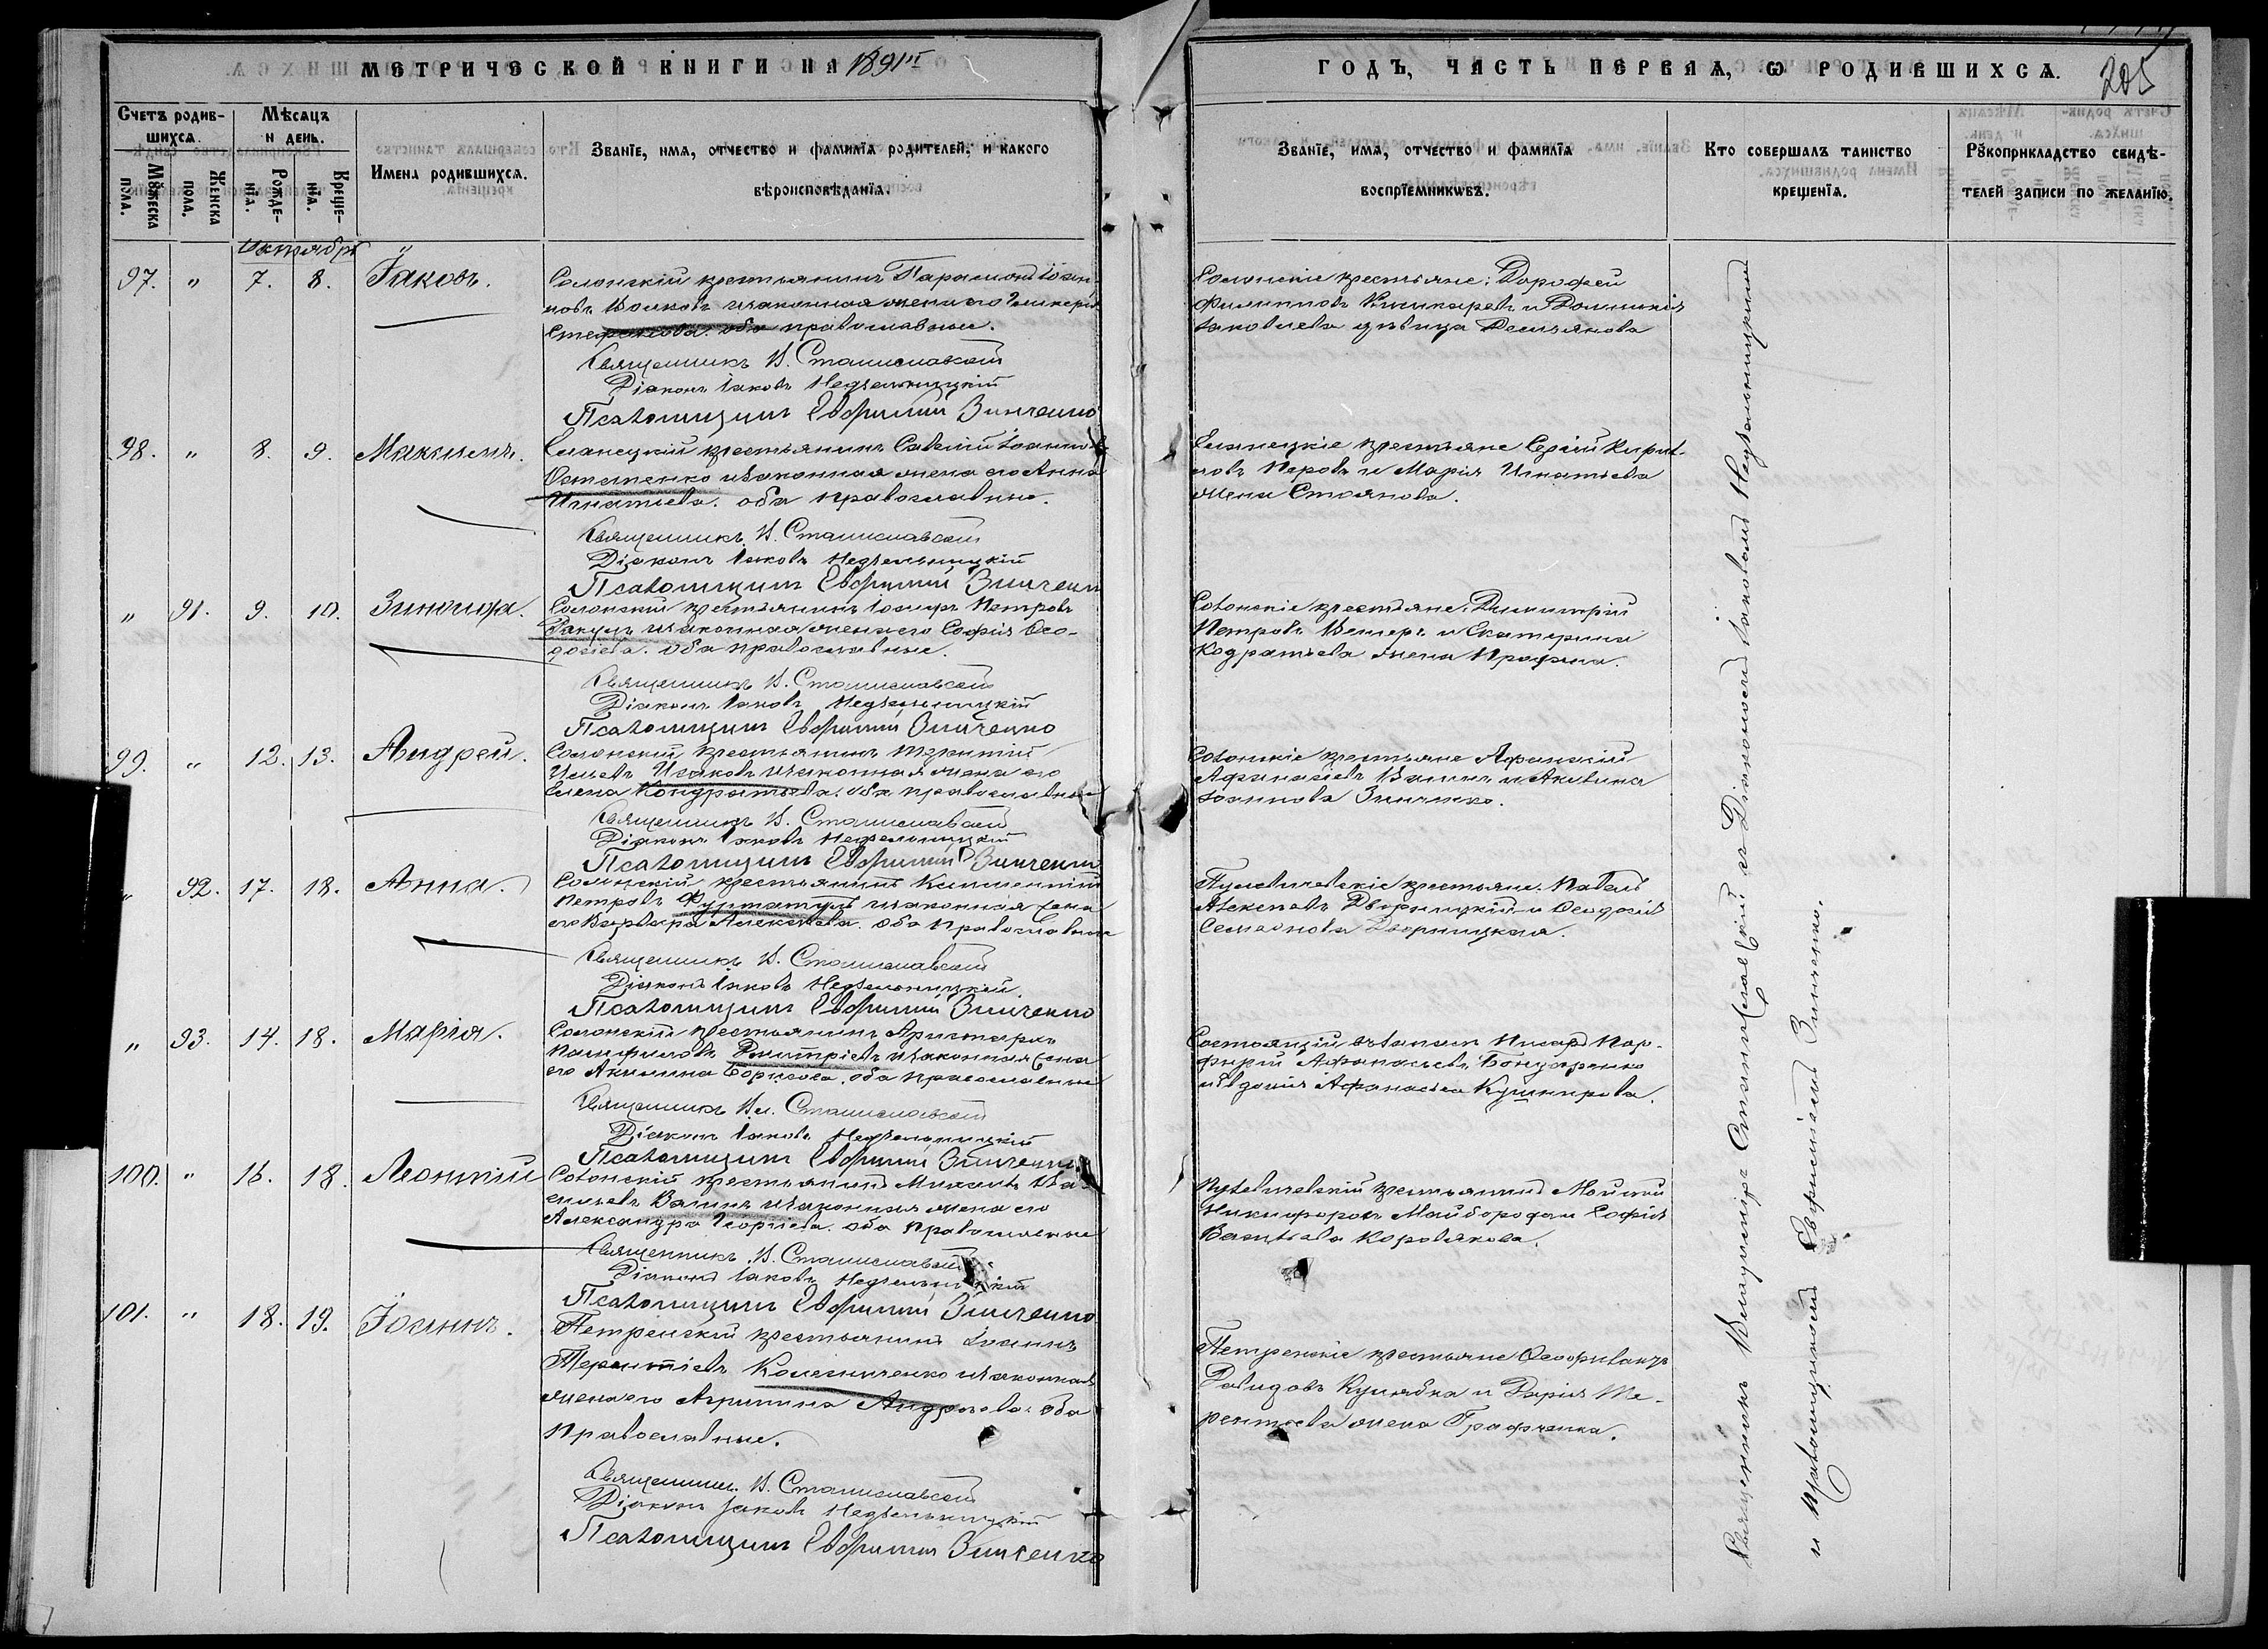 МЕТРИЧЕСКОЙ КНИГИ НА 1891й
ГОДЪ, ЧАСТЬ ПЕРВАЯ, Ѡ РОДИВШИХСѦ.
205
Счетъ родив-
шихсѧ.
Мѣсѧцъ
и день.
Мꙋжеска
пола.
Женска
пола.
Рожде-
нїѧ.
Креще-
нїѧ.
Имена родившихсѧ.
Званїе, имѧ, отчество и фамилїѧ родителей, и какого
вѣроисповѣданїѧ.
Званїе, имѧ, отчество и фамилїѧ
воспрїемникѡвъ.
Кто совершалъ таинство
крещенїѧ.
Рꙋкоприкладство свидѣ-
телей записи по желанїю.
Октябрь
97. " 7. 8. Іаковъ.
Солонскій крестьянинъ Парамонъ Іоан-
новъ Волковъ и законная жена его Гликерія
Стефанова. оба православные.
Священникъ В. Станиславскій
Діаконъ Іаковъ Недзельницкій
Псаломщикъ Евфимій Зинченко
Солонскіе крестьяне: Дорофей
Филипповъ и
Іаковлева дѣвица
98. " 8. 9. Максимъ.
Еланецкій крестьянинъ Савелій Іоанновъ
Остапенко и законная жена его Анна
Игнатьева. оба православные.
Священникъ В. Станиславскій
Діаконъ Іаковъ Недзельницкій
Псаломщикъ Евфимій Зинченко
Еланецкіе крестьяне Сергій Кирил-
ловъ и Марія Игнатьева
жена Стоянова.
" 91. 9. 10. Зинаида.
Солонскій крестьянинъ Іосифъ Петровъ
и законная жена его Софія Ѳео-
досіева. оба православные.
Священникъ В. Станиславскій
Діаконъ Іаковъ Недзельницкій
Псаломщикъ Евфимій Зинченко
Солонскіе крестьяне: Димитрій
Петровъ и Екатерина
Кодратьева жена
99. " 12. 13. Андрей.
Солонскій крестьянинъ Терентій
Исаковъ и законная жена его
Елена Кондратьева. оба православные
Священникъ В. Станиславскій
Діаконъ Іаковъ Недзельницкій
Псаломщикъ Евфимій Зинченко
Солонскіе крестьяне Афанасій
Афанасіевъ и Акилина
Іоаннова Зинченко.
" 92. 17. 18. Анна.
Солонскій крестьянинъ Климентій
Петровъ и законная жена
его Варвара Алексѣева. оба православные
Священникъ В. Станиславскій
Діаконъ Іаковъ Недзельницкій
Псаломщикъ Евфимій Зинченко
крестьяне. Павелъ
Алексѣевъ Дворницкій и Ѳеодосія
Семеонова Дворницкая.
" 93. 14. 18. Марія.
Солонскій крестьянинъ Аристархъ
Памфиловъ Димитріевъ и законная жена
его Акилина Борисова. оба православные
Священникъ Вл. Станиславскій
Діаконъ Іаковъ Недзельницкій
Псаломщикъ Евфимій Зинченко
Состоящій въ запасѣ писарь Пор-
фирій Афанасьевъ Бондаренко
и Евдокія Афанасьева Кушнирова.
100. " 16. 18. Леонтій
Солонскій крестьянинъ Михаилъ Ва-
сильевъ и законная жена его
Александра Георгіева. оба православные
Священникъ В. Станиславскій
Діаконъ Іаковъ Недзельницкій
Псаломщикъ Евфимій Зинченко
крестьянинъ Моисей
Никифоровъ Майборода и Софія
Васильева Коровякова.
101. " 18. 19. Іоаннъ.
Петренскій крестьянинъ Іоаннъ
Терентіевъ Колесниченко и законная
жена его Агрипина Андреева. оба
православные.
Священникъ В. Станиславскій
Діаконъ Іаковъ Недзельницкій
Псаломщикъ Евфимій Зинченко
Петренскіе крестьяне Ѳеофилактъ
Давидовъ Кулябка и Дарія Те-
рентьева жена
Священникъ Владиміръ Станиславскій съ Діакономъ Іаковомъ Недзельницкимъ
и псаломщикомъ Евфиміемъ Зинченко.